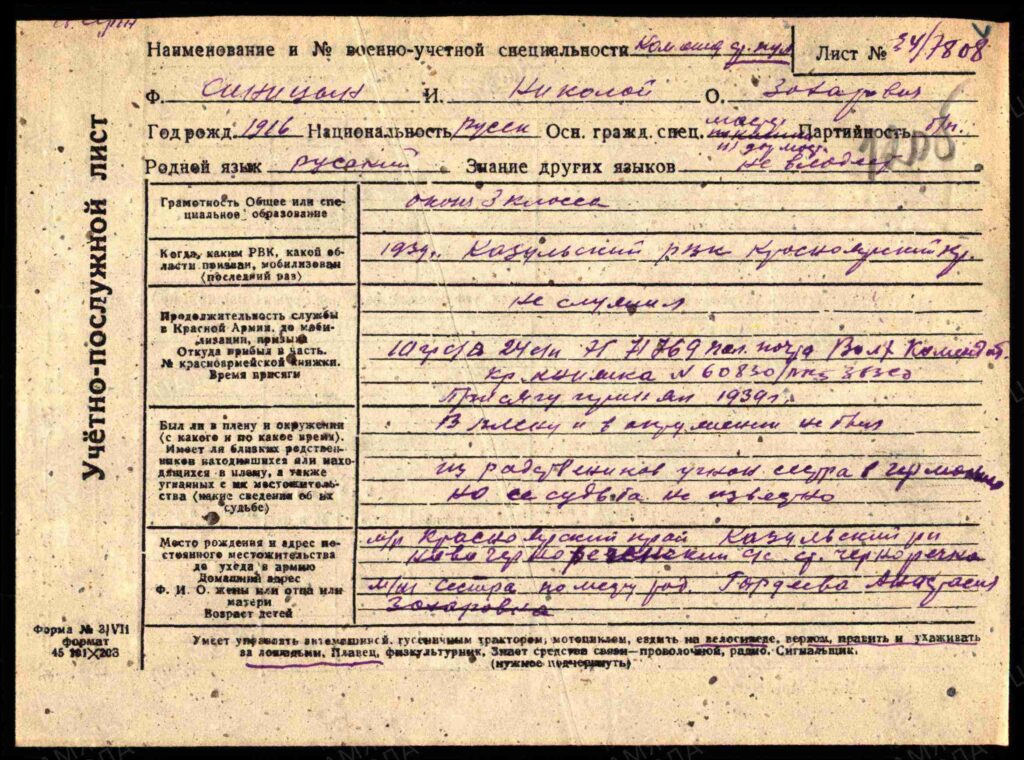 Наименование и № военно-учетной специальности Команд. ст. пул Лист № 34/7808
Ф. Синицын И. Николой О. Зохарович
Год рожд. 1916 Национальность Русск Осн. гражд. спец. Партийность б/п.
Родной язык русский Знание других языков не влодеет
1208
Учётно-послужной лист
Грамотность Общее или специальное образование
оконч 3 клосса
Когда, каким РВК, какой области призван, мобилизован (последний раз)
1939г. Козульский рвк Красноярский кр.
Продолжительность службы в Красной Армии, до мобилизации, призыва
Откуда прибыл в часть.
№ красноармейской книжки.
Время присяги
не служил
10 24 сп 71769 пол. почто
кр. книжка N 60830
Присягу принял 1939г.
Был ли в плену и окружении (с какого и по какое время).
Имеет ли близких родственников находившихся или находящихся в плену, а также угнанных с их местожительства (какие сведения об их судьбе)
В плену и в окружении не был
из родственников угнон сестра в германию
но ее судьба не известно
Место рождения и адрес постоянного местожительства до ухода в армию
Домашний адрес
Ф. И. О. жены или отца или матери
Возраст детей
м/р Красноярский край Козульский рн
Ново Чернореченский с/с ст. Черноречка
м/ж сестра по мец род. Гордеева Анастасия
Зохаровна
Форма № 3/VII
формат
Умеет управлять автомашиной, гусеничным трактором, мотоциклом, ездить на велосипеде, верхом, править и ухаживать
за лошадьми, Пловец, физкультурник, Знает средства связи—проволочной, радио. Сигнальщик.
(нужное подчеркнуть)